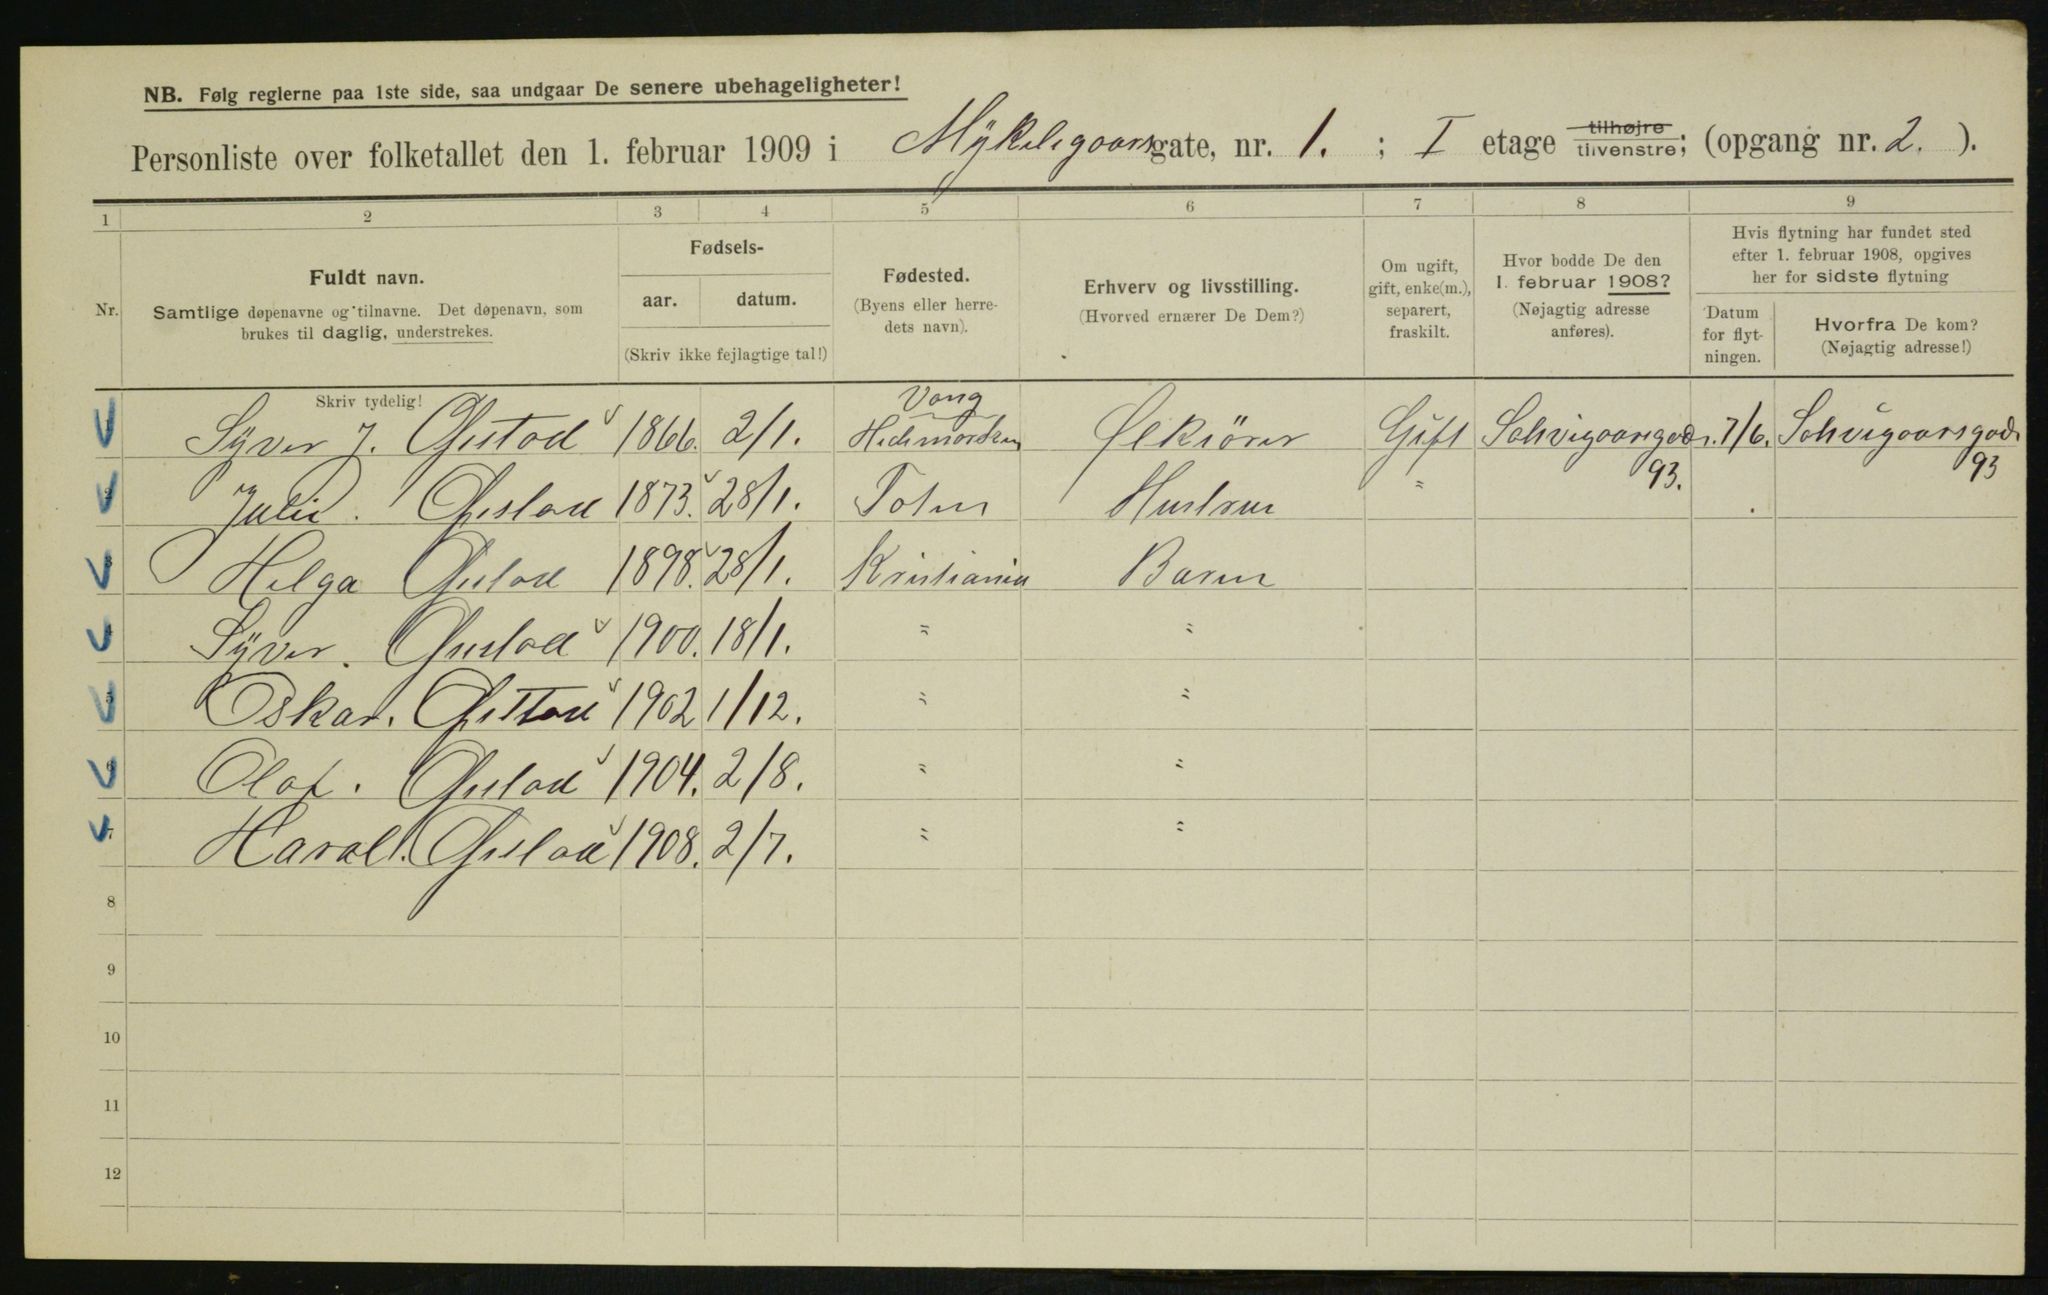 NB. Følg reglerne paa 1ste side, saa undgaar De senere ubehageligheter!
Personliste over folketallet den 1. februar 1909 i Mÿkelegaardsgate, nr. 1. ; I etage tilhøjre tilvenstre; (opgang nr. 2. ).
1 2 3 4 5 6 7 8 9
Nr.
Fuldt navn.
Samtlige døpenavne og tilnavne. Det døpenavn, som
brukes til daglig, understrekes.
Skriv tydelig!
Fødsels-
aar. datum.
(Skriv ikke fejlagtige tal!)
Fødested.
(Byens eller herre-
dets navn).
Erhverv og livsstilling.
(Hvorved ernærer De Dem?)
Om ugift,
gift, enke(m.),
separert,
fraskilt.
Hvor bodde De den
1. februar 1908?
(Nøjagtig adresse
anføres).
Hvis flytning har fundet sted
efter 1. februar 1908, opgives
her for sidste flytning
Datum
for flyt-
ningen.
Hvorfra De kom?
(Nøjagtig adresse!)
1 Sÿver J. Gustad 1866. 2/1. Vang Hedemarken Ølkiörer Gift Schveigaardsgade 93. 7/6. Schveigaardsgade 93
2 Julie. Gustad 1873. 28/1. Toten " Hustrue "
3 Helga Gustad 1898. 28/1. Kristiania Barn
4 Sÿver. Gustad 1900. 18/1. " "
5 Oskar. Gustad 1902 1/12. " "
6 Olaf. Gustad 1904. 2/8. " "
7 Haral. Gustad 1908. 2/7. " "
8
9
10
11
12